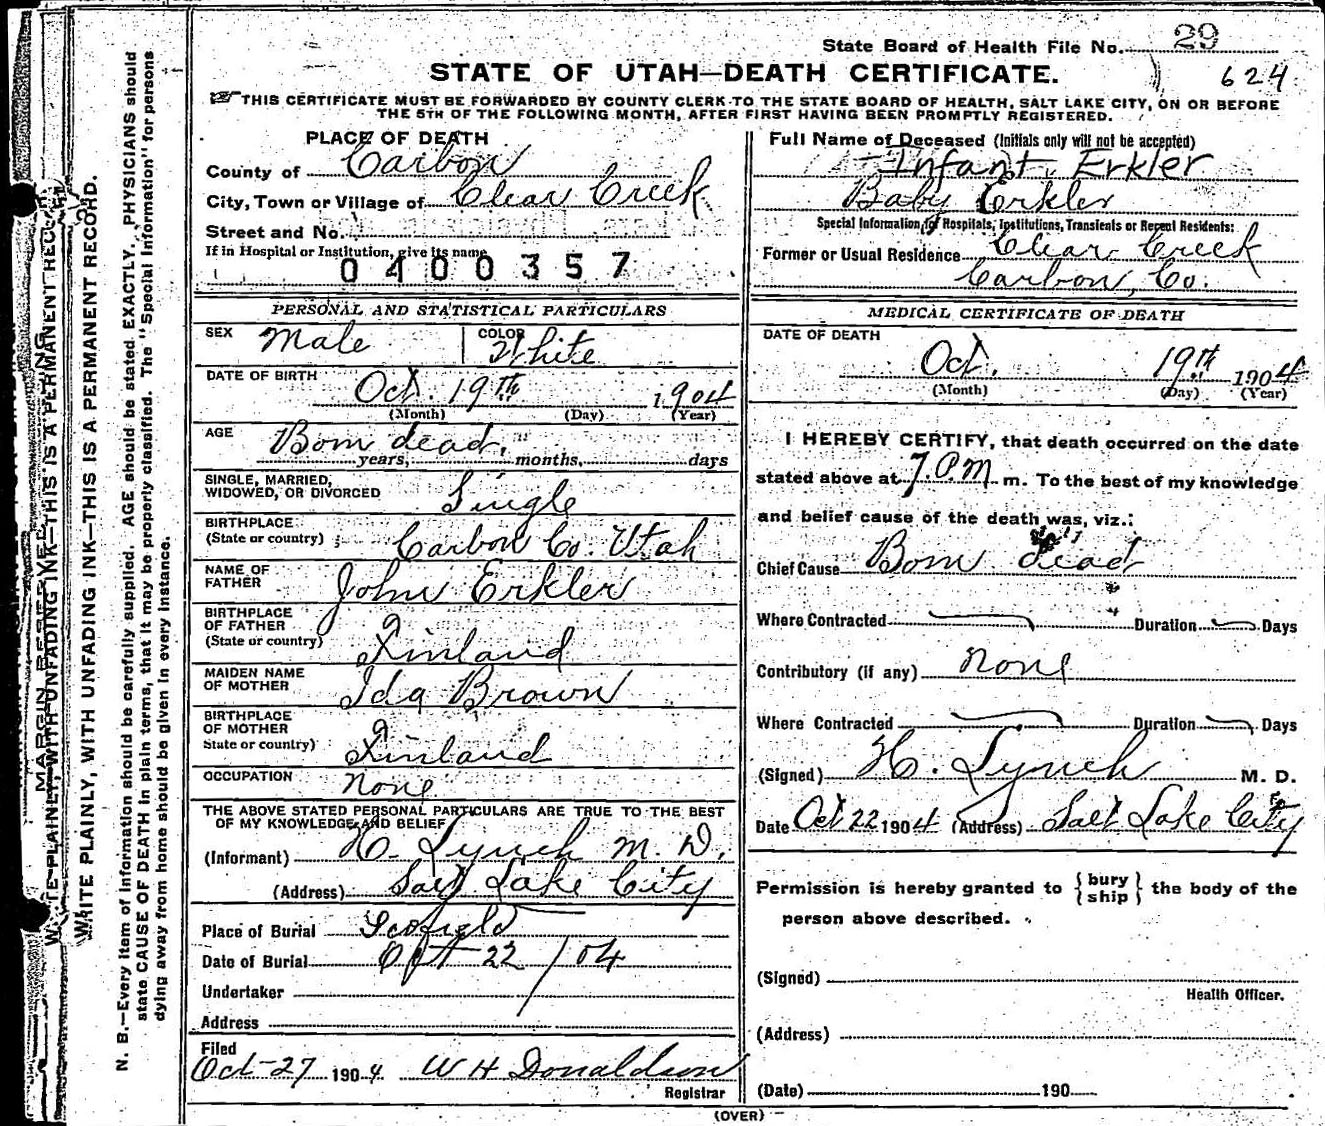 State Board of Health File No. 29
624
STATE OF UTAH—DEATH CERTIFICATE.
THIS CERTIFICATE MUST BE FORWARDED BY COUNTY CLERK TO THE STATE BOARD OF HEALTH, SALT LAKE CITY, ON OR BEFORE
THE 5TH OF THE FOLLOWING MONTH, AFTER FIRST HAVING BEEN PROMPTLY REGISTERED.
PLACE OF DEATH
County of Carbon
City, Town or Village of Clear Creek
Street and No.
If in Hospital or Institution, give its name
0400357
Full Name of Deceased (Initials only will not be accepted)
Infant Erkler
Baby Erkler
Special Information for Hospitals, Institutions, Transients or Recent Residents:
Former or Usual Residence Clear Creek
Carbon, Co.
PERSONAL AND STATISTICAL PARTICULARS
SEX Male COLOR White
DATE OF BIRTH
Oct. 19th 1904
(Month) (Day) (Year)
AGE Born dead.
years, months, days
SINGLE, MARRIED,
WIDOWED, OR DIVORCED Single
BIRTHPLACE
(State or country) Carbon Co. Utah
NAME OF
FATHER John Erkler
BIRTHPLACE
OF FATHER
(State or country) Finland
MAIDEN NAME
OF MOTHER Ida Brown
BIRTHPLACE
OF MOTHER
State or country) Finland
OCCUPATION None
THE ABOVE STATED PERSONAL PARTICULARS ARE TRUE TO THE BEST
OF MY KNOWLEDGE AND BELIEF
(Informant) H. Lynch M. D.
(Address) Salt Lake City
Place of Burial Scofield
Date of Burial Oct 22/04
Undertaker
Address
Filed
Oct-27 1904 W H Donaldson
Registrar
MEDICAL CERTIFICATE OF DEATH
DATE OF DEATH
Oct. 19th 1904
(Month) (Day) (Year)
I HEREBY CERTIFY, that death occurred on the date
stated above at 7.P.M. m. To the best of my knowledge
and belief cause of the death was, viz.:
Chief Cause Born dead
Where Contracted Duration Days
Contributory (if any) None
Where Contracted Duration Days
(Signed) H. Lynch M. D.
Date Oct 22 1904 (Address) Salt Lake City
Permission is hereby granted to { bury
ship } the body of the
person above described.
(Signed)
Health Officer.
(Address)
(Date) 190
(OVER)
MARGIN RESERVED
WRITE PLAINLY, WITH UNFADING INK—THIS IS A PERMANENT RECORD
WRITE PLAINLY, WITH UNFADING INK—THIS IS A PERMANENT RECORD.
N. B.—Every item of information should be carefully supplied. AGE should be stated EXACTLY. PHYSICIANS should
state CAUSE OF DEATH in plain terms, that it may be properly classified. The "Special Information" for persons
dying away from home should be given in every instance.